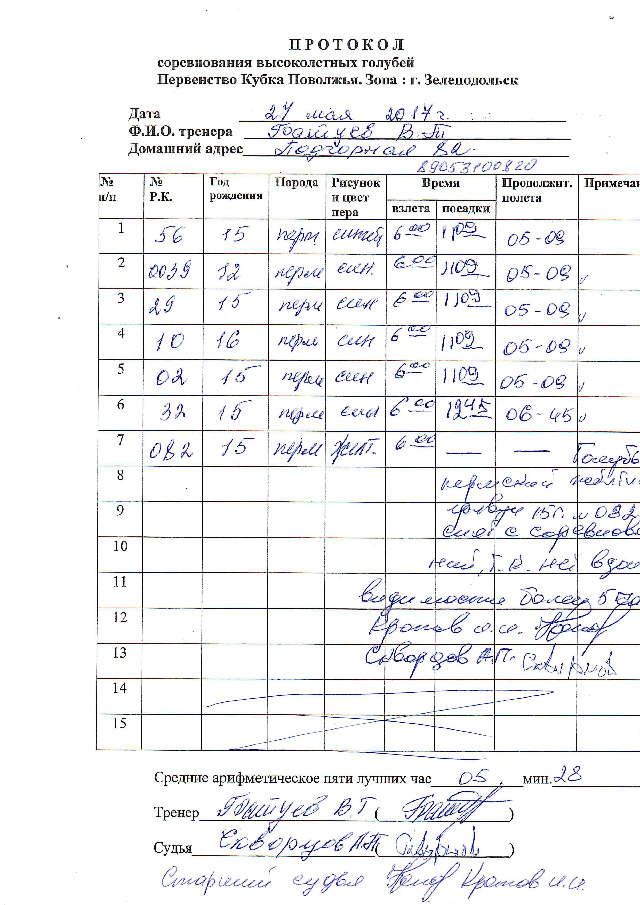 П Р О Т О К О Л
соревнования высоколетных голубей
Первенство Кубка Поволжья. Зона : г. Зеленодольск
Дата 27 мая 2017г.
Ф.И.О. тренера Батуев В.Т
Домашний адрес Подгорная 8а
89053100820
№ п/п № Р.К. Год рождения Порода Рисунок и цвет пера Время взлета посадки Продолжит. полета Примечан
1 56 15 перм синий 6 00 11 09 05-09
2 0039 12 перм син. 6 00 11 09 05-09 〃
3 29 15 перм син 6 00 11 09 05-09 〃
4 10 16 перм син 6 00 11 09 05-09 〃
5 02 15 перм син 6 00 11 09 05-09 〃
6 32 15 перм син 6 00 12 45 06-45 〃
7 082 15 перм желт. 6 00 — — Голубь
8 пермской
9 15г. № 082
снят с соревнова
10 ний, т.к. не
11 видимости более
12 Кротов И.И.
13 Скворцов А.П.
14
15
Средние арифметическое пяти лучших час 05 мин. 28
Тренер Батуев В Т ( )
Судья Скворцов А.П ( )
Старший судья Кротов И.И.